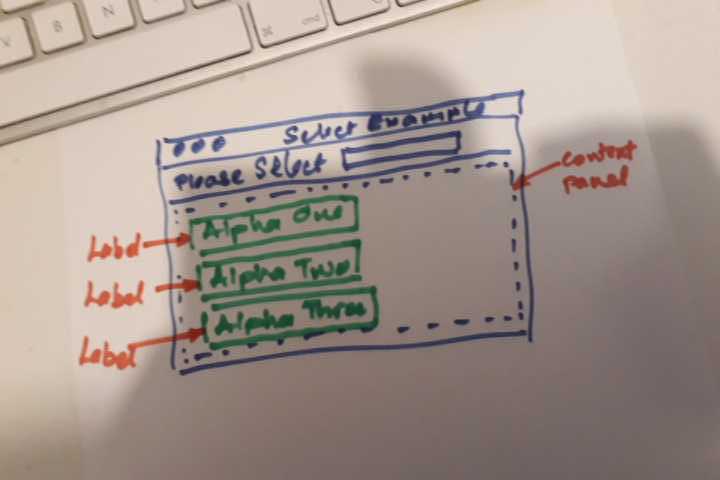 V
B
N
⌘
cmd
Select Example
Please Select
Context
panel
Alpha One
Label
Alpha Two
Label
Alpha Three
Label